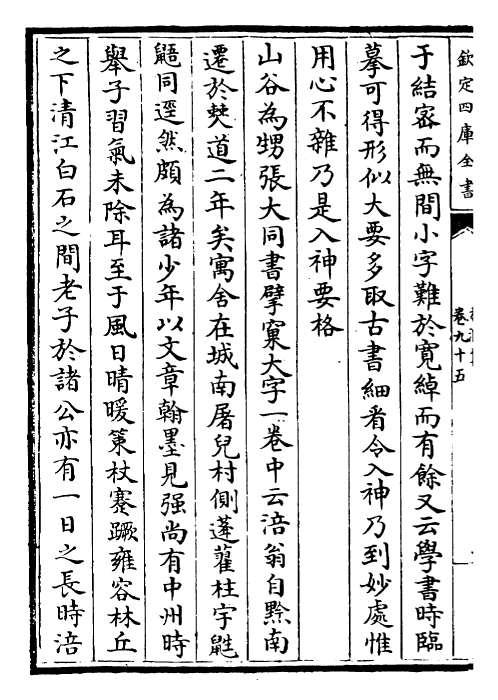 欽定四庫全書
卷九十五
于結宻而無間小字難於寛綽而有餘又云學書時臨
摹可得形似大要多取古書細看令入神乃到妙處惟
用心不雜乃是入神要格
山谷為甥張大同書擘窠大字一卷中云涪翁自黔南
遷於僰道二年矣寓舍在城南屠兒村側蓬藋柱宇鼪
鼯同逕然頗為諸少年以文章翰墨見强尚有中州時
舉子習氣未除耳至于風日晴暖策杖蹇蹶雍容林丘
之下清江白石之間老子於諸公亦有一日之長時涪